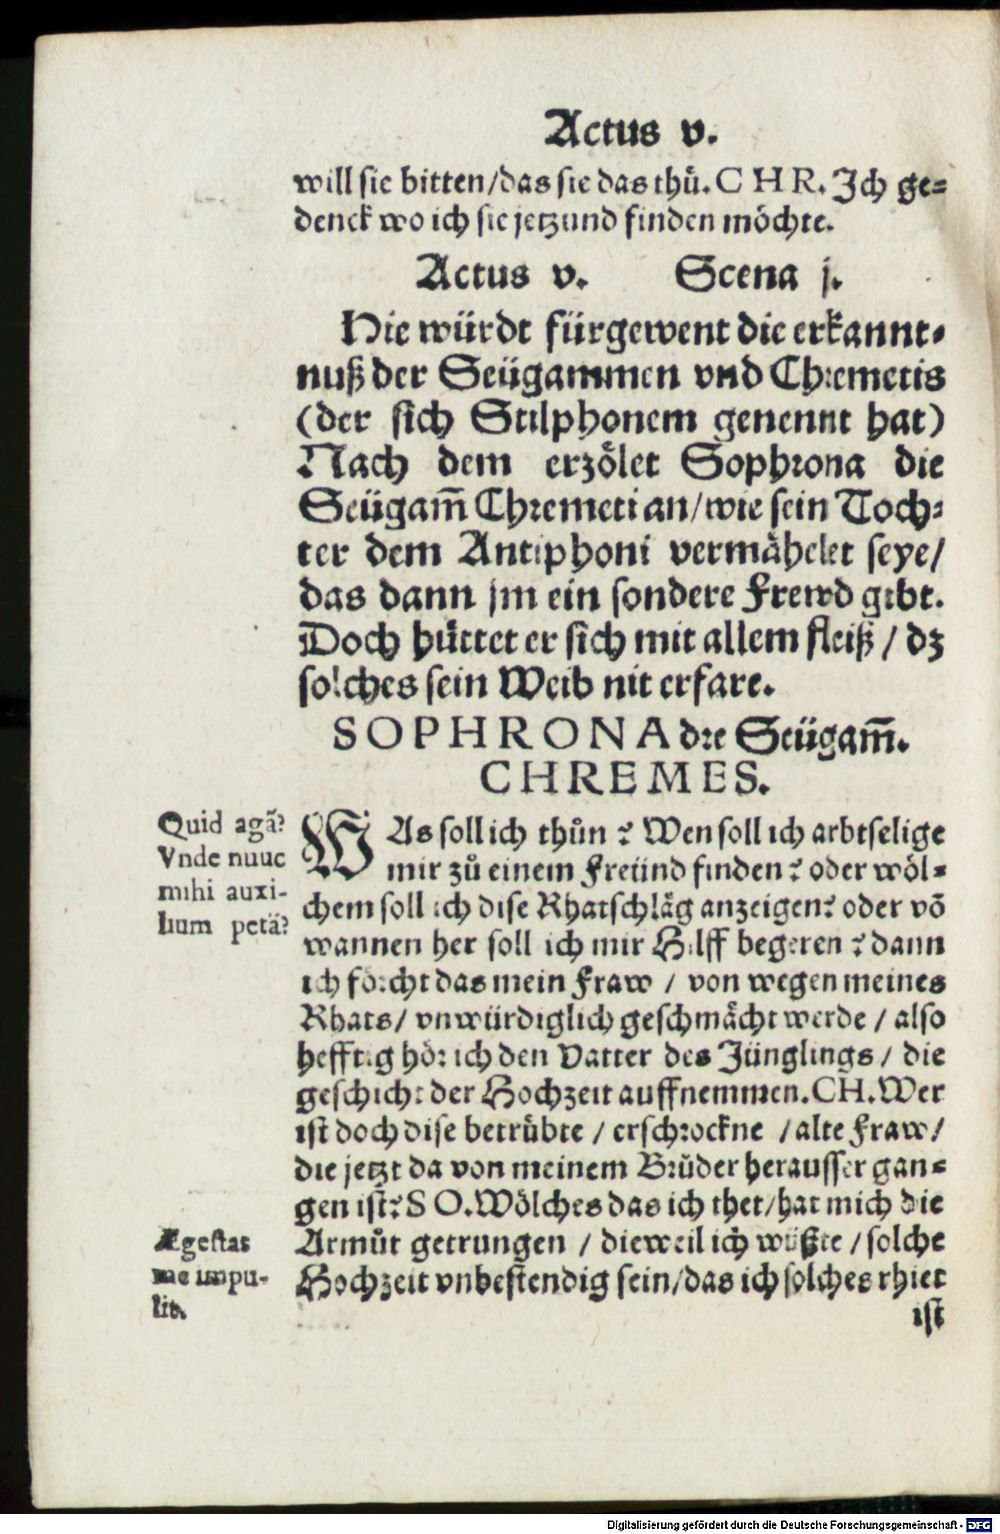 Actus v.
will sie bitten/das sie das thů. CHR. Ich ge=
denck wo ich sie jetzund finden möchte.
Actus v. Scena j.
Hie würdt fürgewent die erkannt=
nuß der Seügammen vnd Chremetis
(der sich Stilphonem genennt hat)
Nach dem erzölet Sophrona die
Seügam̃ Chremeti an/wie sein Toch=
ter dem Antiphoni vermåhelet seye/
das dann jm ein sondere Frewd gibt.
Doch hüttet er sich mit allem fleiß / dz
solches sein Weib nit erfare.
SOPHRONA die Seügam̃.
CHREMES.
Quid agã?
Vnde nuuc
mihi auxi-
lium petã?
WAs soll ich thůn ? Wen soll ich arbtselige
mir zů einem Freünd finden ? oder wöl=
chem soll ich dise Rhatschläg anzeigen? oder võ
wannen her soll ich mir Hilff begeren ? dann
ich förcht das mein Fraw / von wegen meines
Rhats/ vnwürdiglich geschmåcht werde / also
hefftig hör ich den Vatter des Jünglings / die
geschicht der Hochzeit auffnemmen. CH. Wer
ist doch dise betrůbte / erschrockne / alte Fraw/
die jetzt da von meinem Brůder herausser gan=
gen ist? SO. Wölches das ich thet/hat mich die
Ægestas
me impu-
lit.
Armůt getrungen / dieweil ich wüßte / solche
Hochzeit vnbestendig sein/das ich solches rhiet
ist
Digitalisierung gefördert durch die Deutsche Forschungsgemeinschaft - DFG